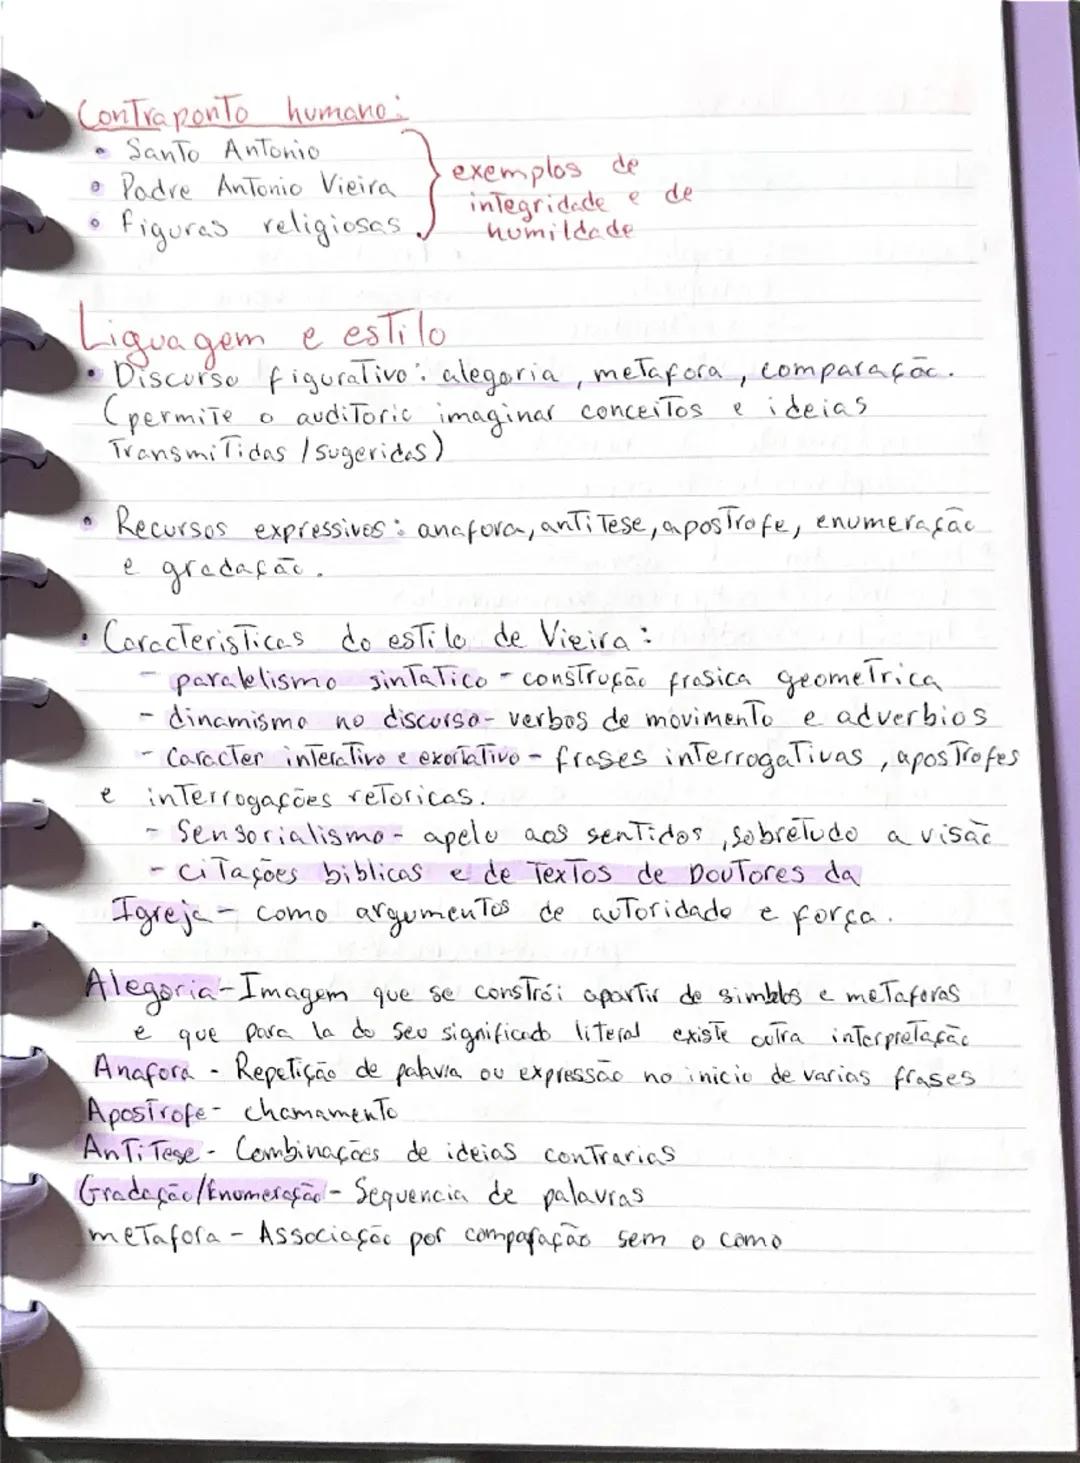 Contraponto humano:
• Santo Antonio
• Padre Antonio Vieira
• figuras religiosas.
exemplos de
integridade e de
humildade
Liguagem e estilo
• Discurso figurativo: alegoria, metafora, comparação.
(permite o auditorio imaginar conceitos e ideias
transmitidas / sugeridas)
• Recursos expressivos: anafora, antitese, apostrofe, enumeração
e gradação.
• Caracteristicas do estilo de Vieira:
- paralelismo sintatico - construção frasica geometrica
- dinamismo no discurso - verbos de movimento e adverbios
- Caracter interativo e exortativo - frases interrogativas, apostrofes
e interrogações retoricas.
- Sensorialismo - apelo aos sentidos, sobretudo a visão
- citações biblicas e de textos de Doutores da
Igreja - como argumentos de autoridade e força.
Alegoria - Imagem que se constrói apartir de simblos e metaforas
e que para la do seu significado literal existe outra interpretação
Anafora - Repetição de palavra ou expressão no inicio de varias frases
Apostrofe - chamamento
Antitese - Combinações de ideias contrarias
Gradação/Enumeração - Sequencia de palavras
metafora - Associação por comparação sem o como